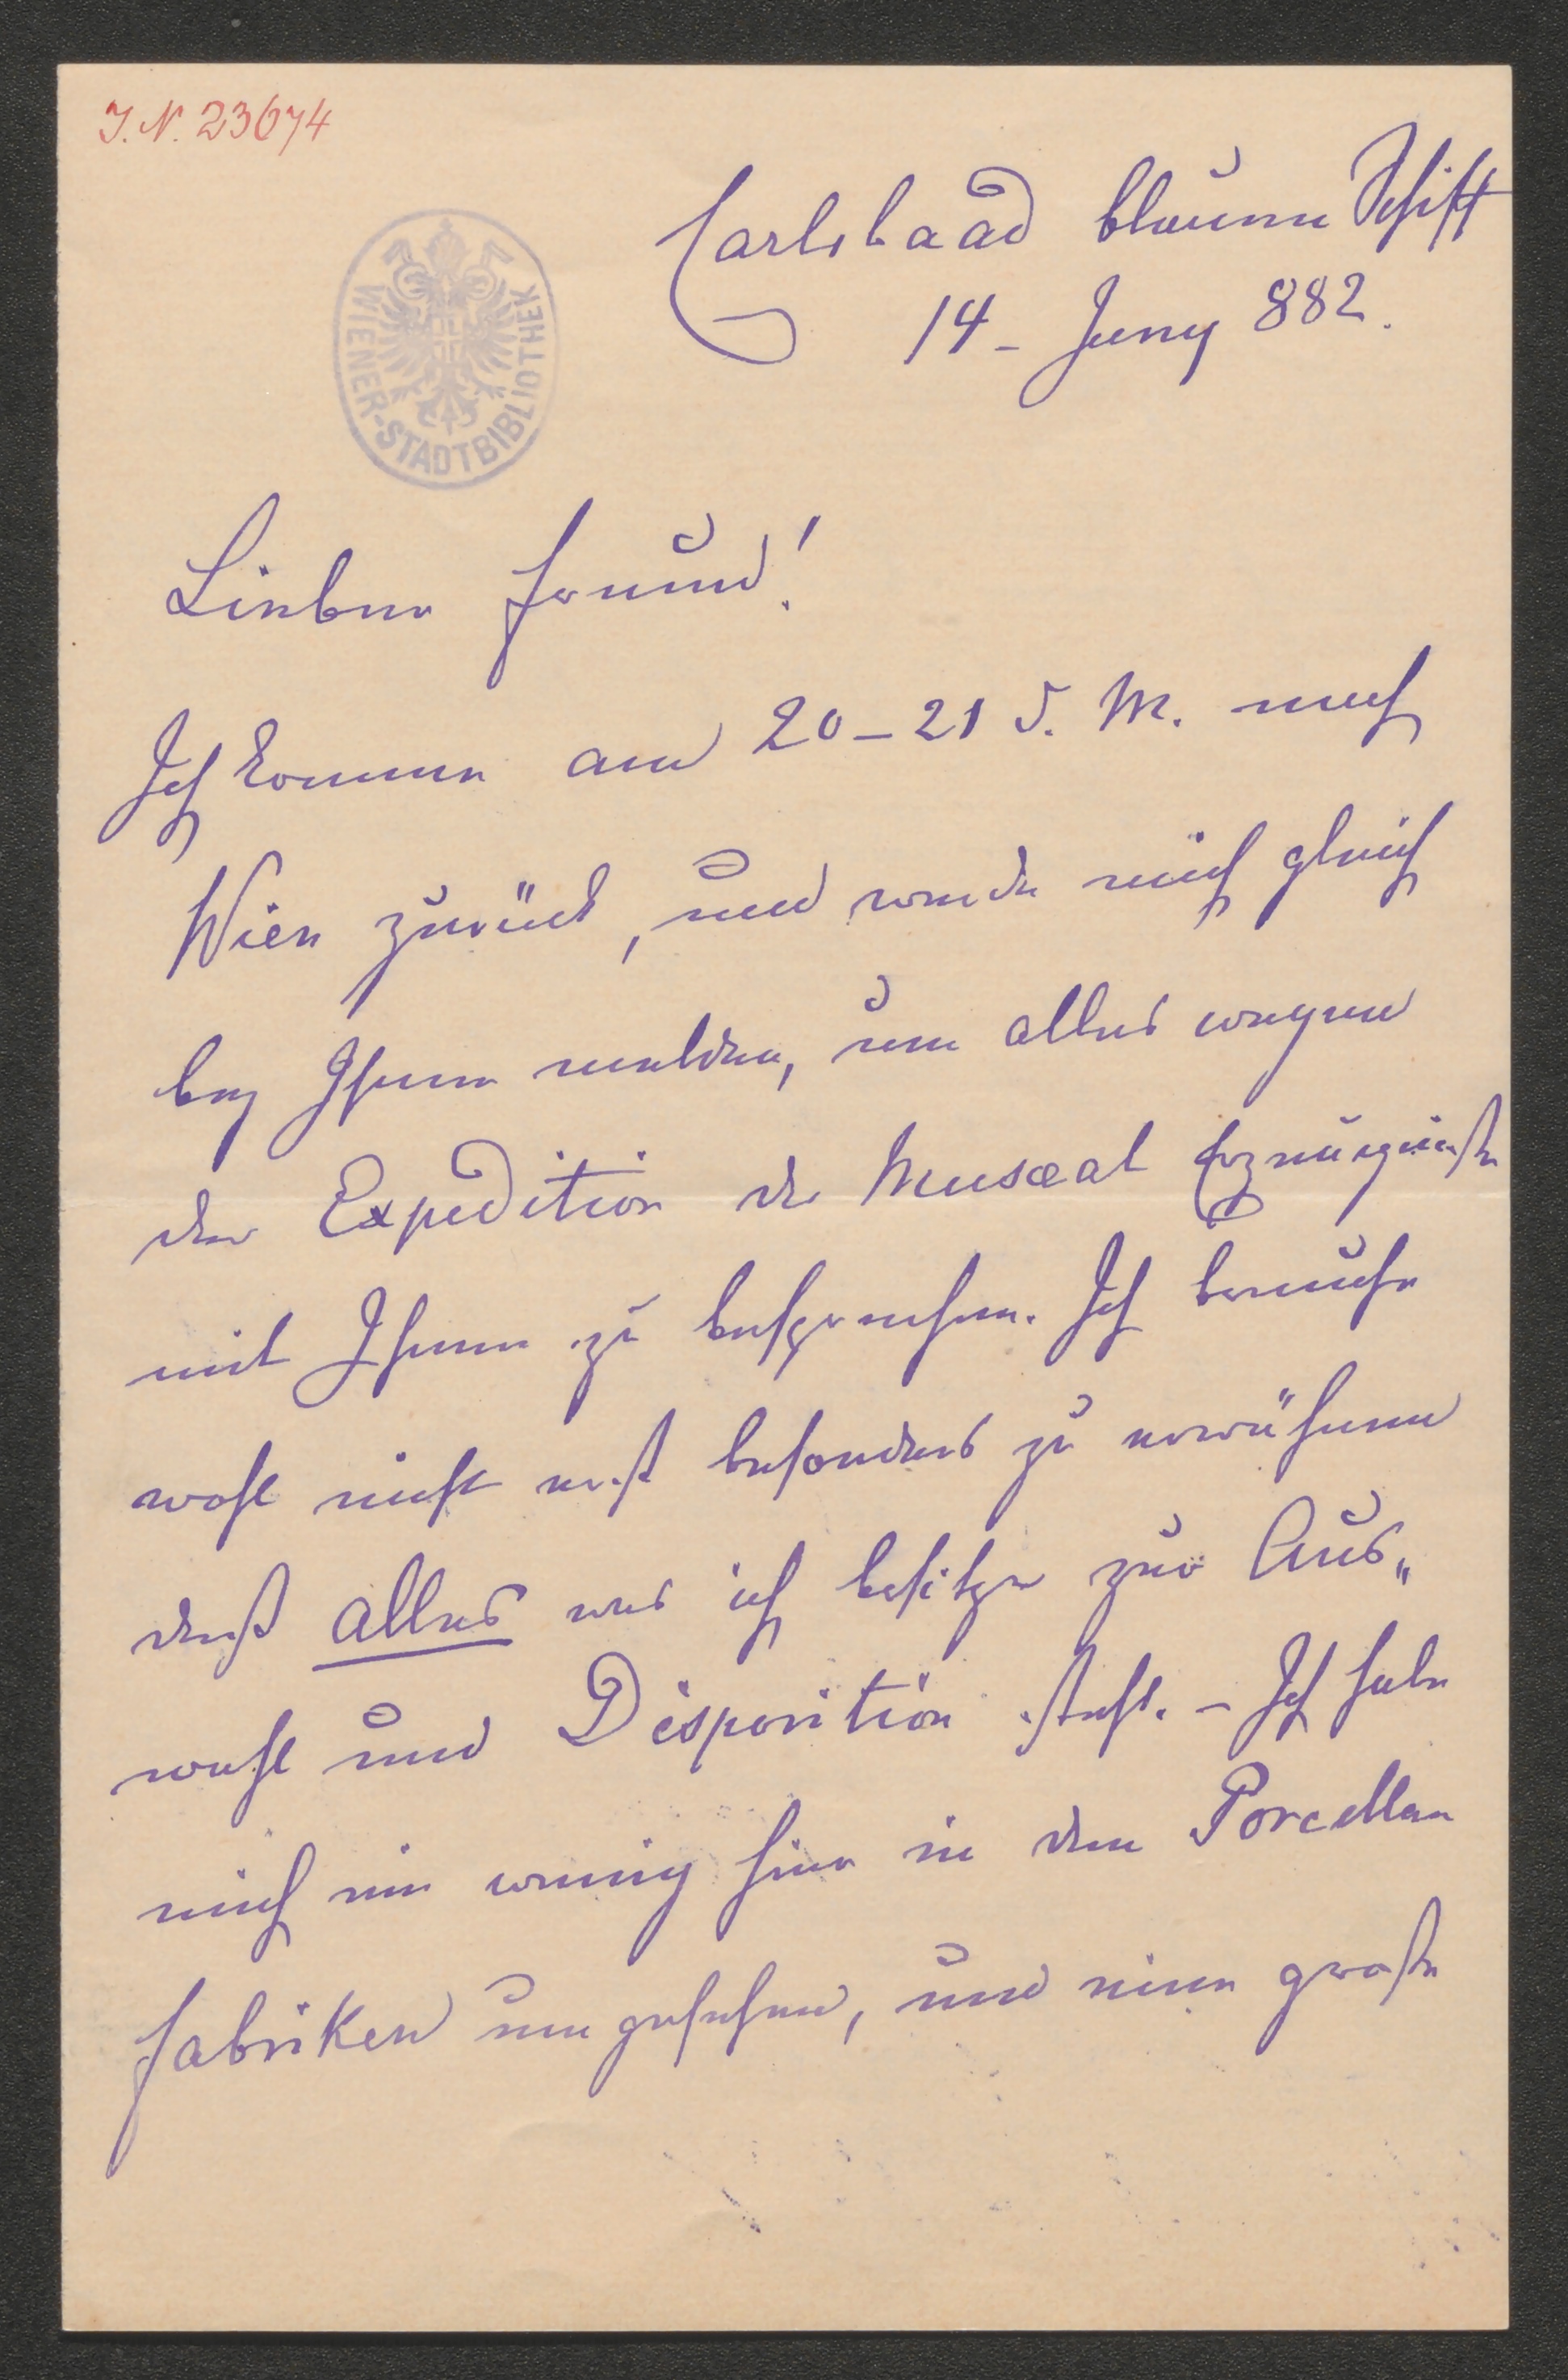 I. N. 23674
WIENER-STADTBIBLIOTHEK
Carlsbaad blaune Schiff
14 - Juny 882.
Lieber Freund!
Ich komme am 20-21 d. M. nach
Wien zurück, und werde mich gleich
bey Ihnen melden, um alles wegen
der Expedition der Musaeal Erzeugniße
mit Ihnen zu besprechen. Ich brauche
wohl nicht erst besonders zu erwähnen
daß alles was ich besitze zur Aus„
wahl und Disposition steht. - Ich habe
mich ein wenig hier in den Porcellan
Fabriken umgesehen, und eine große